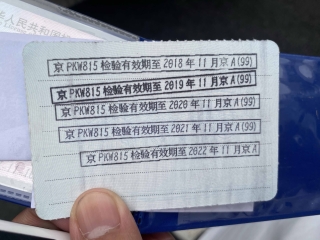 华人民共和国
京PKW815 检验有效期至2018年11月京A(99)
京PKW815 检验有效期至2019年11月京A(99)
京PKW815 检验有效期至2020年11月京A(99)
京PKW815 检验有效期至2021年11月京A(99)
京PKW815 检验有效期至2022年11月京A(99)